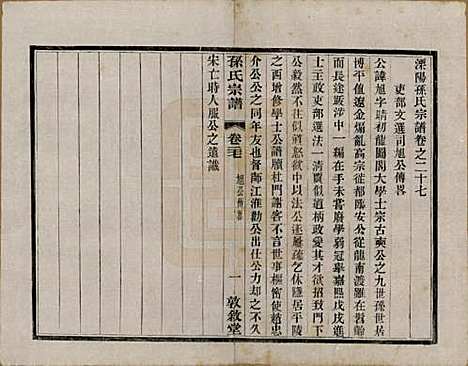 溧陽孫氏宗譜卷之二十七
吏部文選司旭公傳畧
公諱旭字晴初龍圖閣大學士宗古奭公之九世孫世居
博平值遼金煽亂高宗從都臨安公從龍南渡雖在髫齡
而長途跋涉中一編在手未嘗廢學弱冠舉嘉熙戊戌進
士主政吏部選法一清賈似道柄政愛其才欲招致門下
公毅然不往忤似道中以法公遂履疏乞休隱居平陵
之西增修學士公譜牘杜門謝客不言世事樞密使趙忠
介公公之同年友也督師江淮勸公出仕公力却之不久
宋亡時人服公之遠識
孫氏宗譜
卷二十七
旭公傳畧
一
敦敘堂